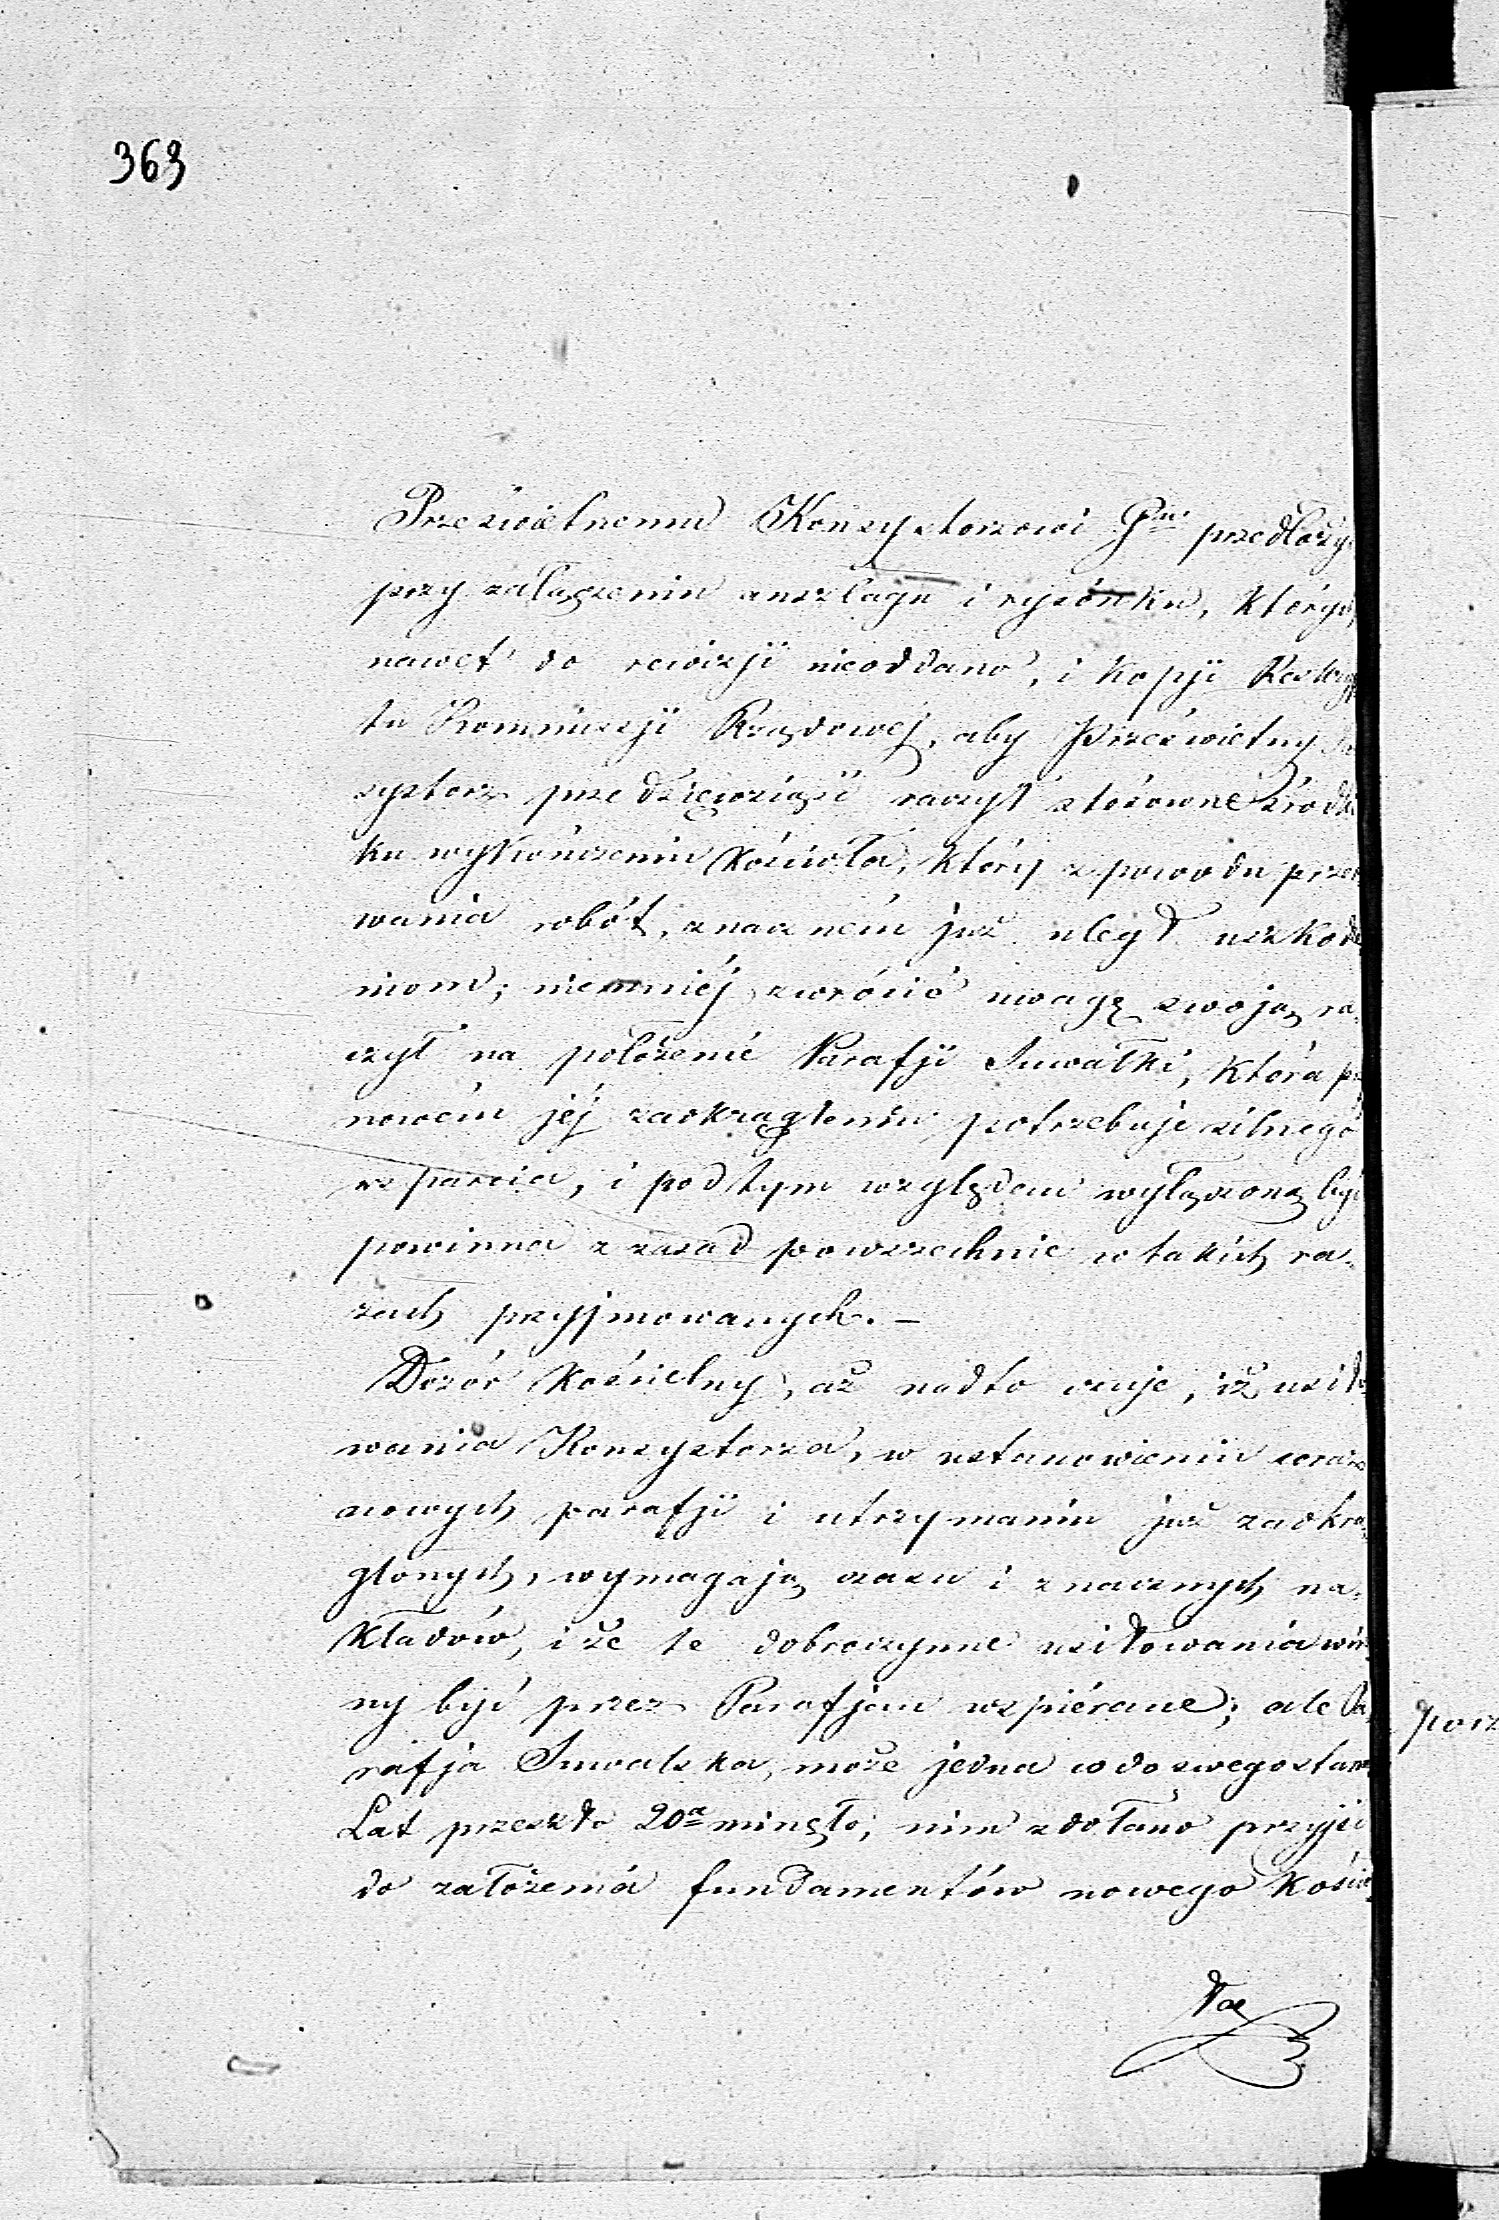 363
Prześwietnemu Konsystorzowi Glu. przedłoży
przy załączeniu anszlagu i rysónku, którego
nawet do rewizji nieoddano, i kopji Reskryp
tu Kommissji Rządowéj, aby Prześwietny
systorz przedsięwziąść raczył stósowne środk
ku wykończeniu kościoła, który z powodu przer
wania robót, znacznem już uległ uszkodze
niom; niemniéj zwrócić uwagę swoją ra-
czył na położenie Parafji Suwałki, która p
nowém jéj zaokrągleniu potrzebuje silnego
wsparcia, i pod tym względem wyłączoną być
powinna z zasad powszechnie w takich ra-
zach przyjmowanych. –
Dozór Kościelny, aż nadto czuje, iż usiło
wania Konsystorza, w ustanowieniu coraz
nowych parafji i utrzymaniu już zaokrą
glonych, wymagają czasu i znacznych na-
kładów, i że te dobroczynne usiłowania win
ny być przez Parafjan wspiérane; ale Pa
rafja Suwalska, może jedna co do swego stanu
Lat przeszło 20a minęło, nim zdołano przyjść
do założenia fundamentów nowego kościo
ła
porz